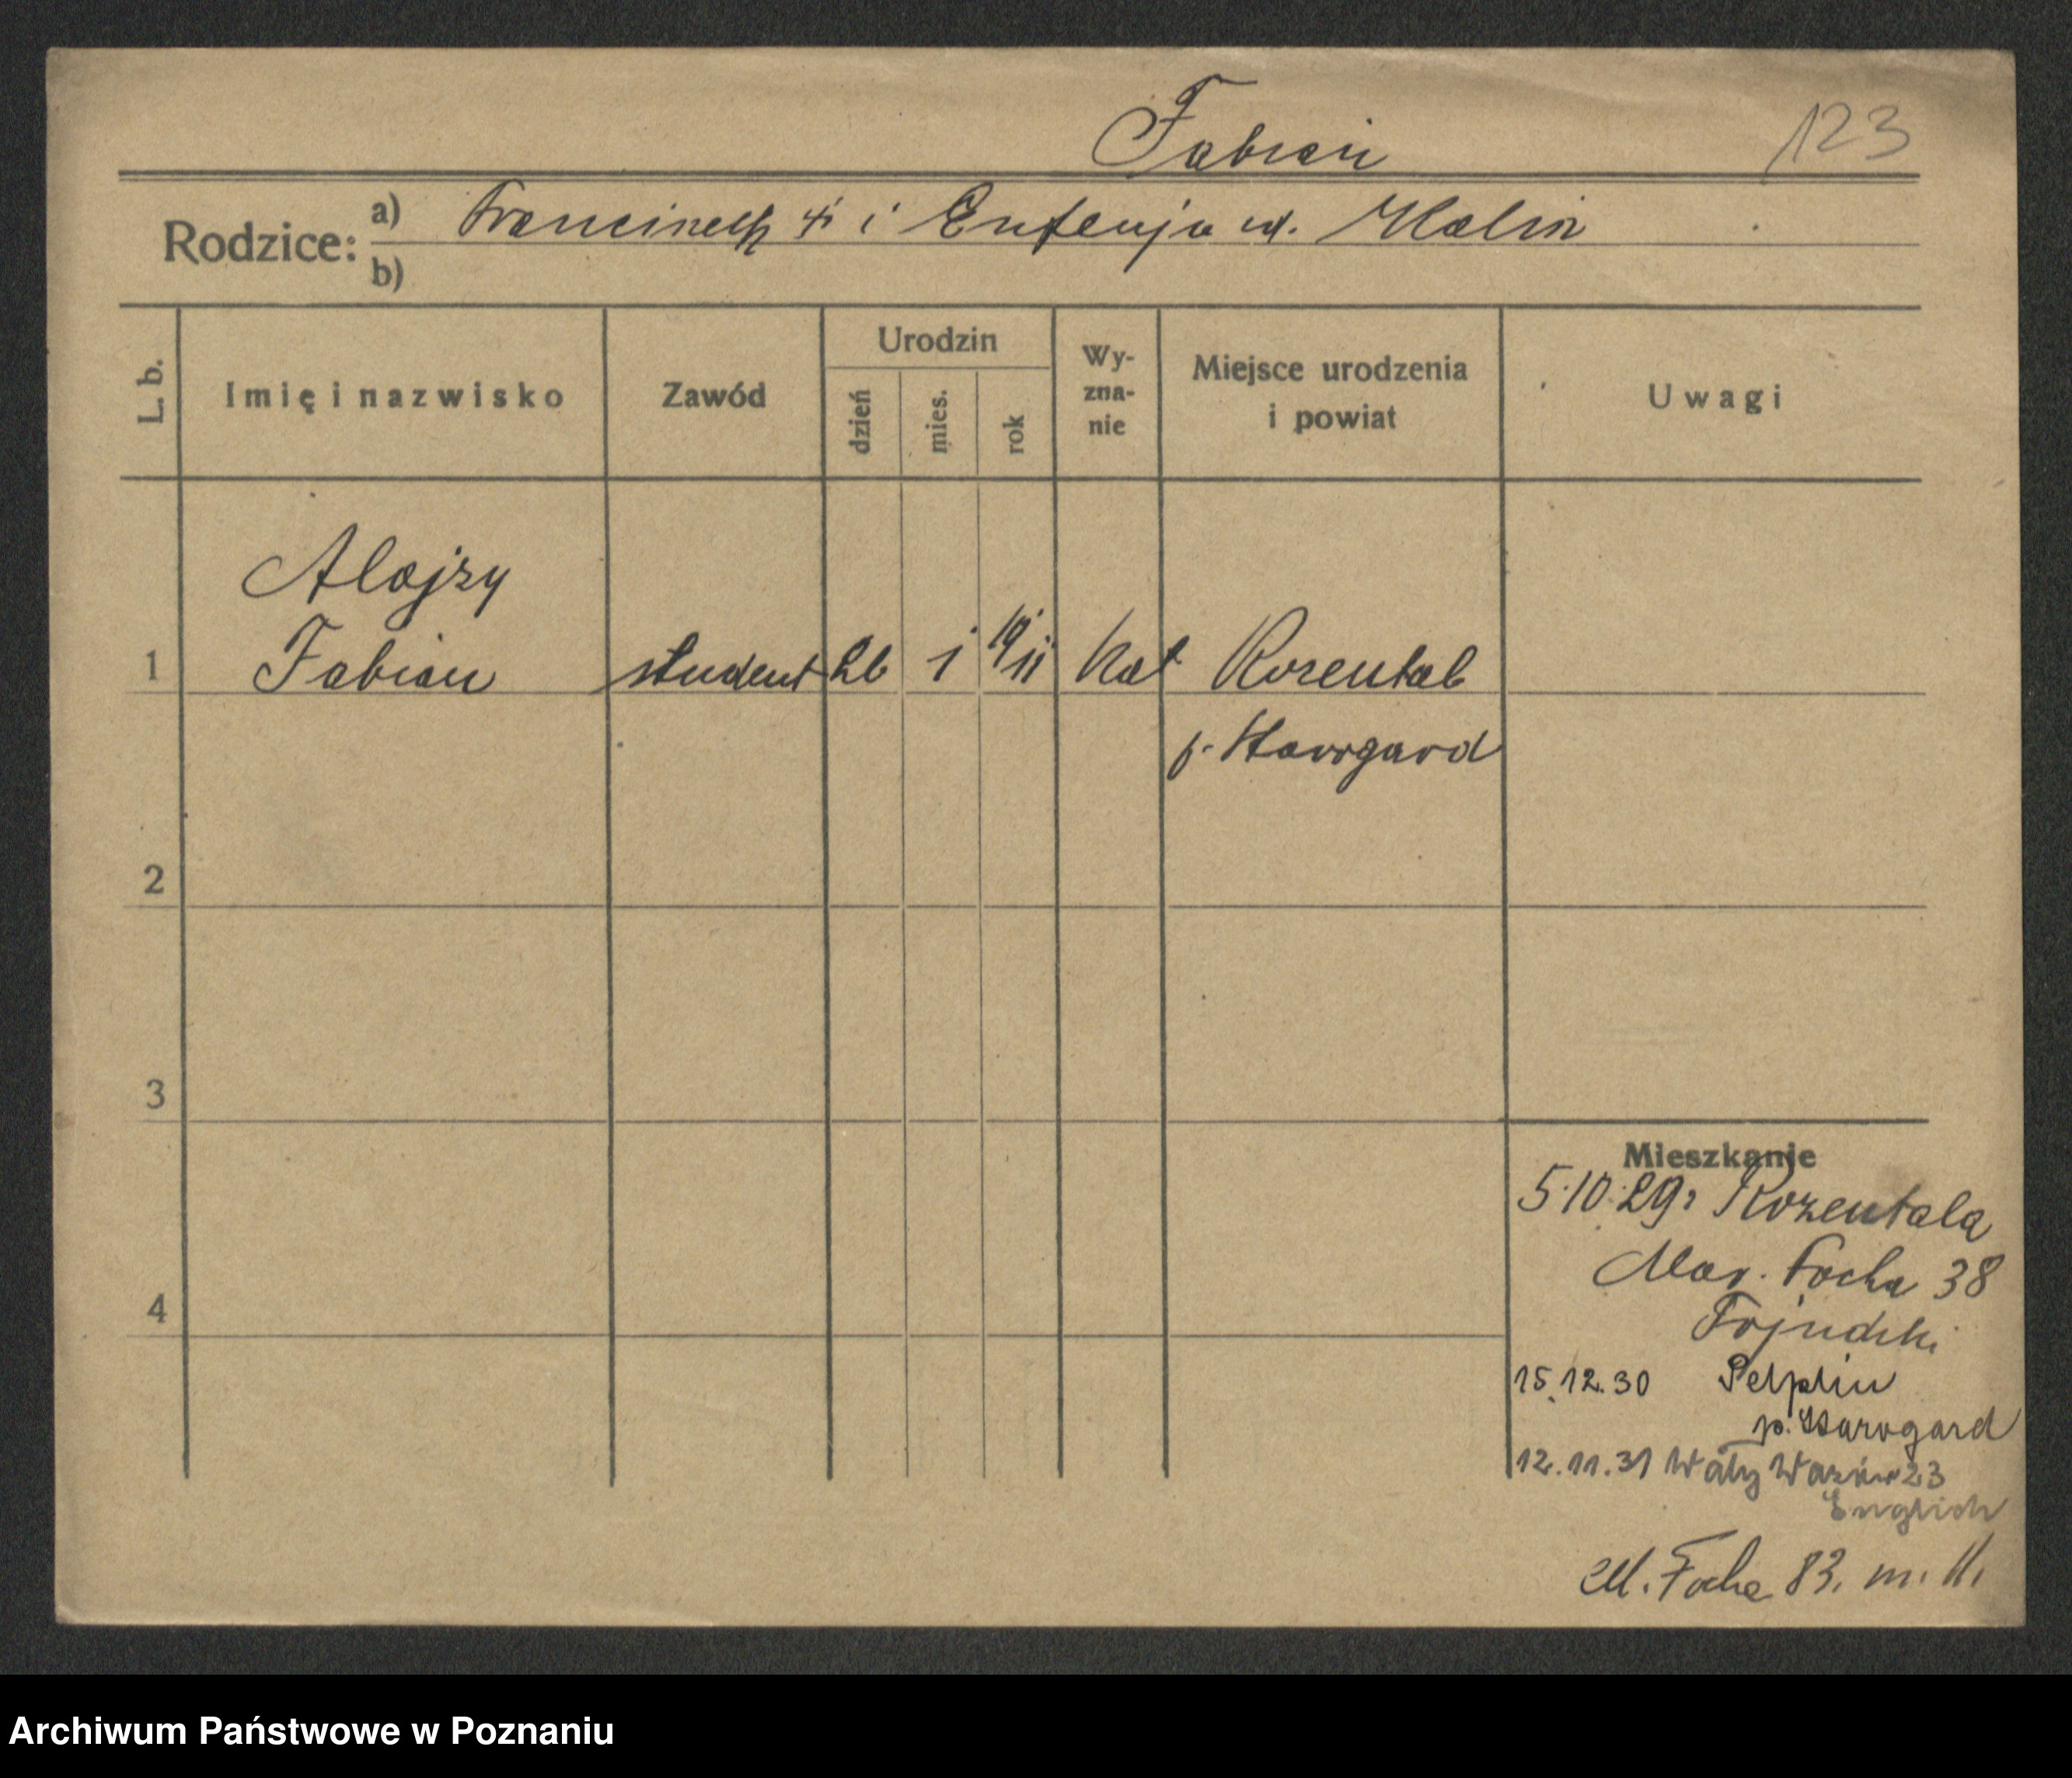 Fabian 123
Rodzice: a) Franciszek i Eufenja ur. Malin
b)
L. b. Imię i nazwisko Zawód Urodzin dzień mies. rok Wy-zna-nie Miejsce urodzenia i powiat Uwagi
Alojzy
1 Fabian student 26 1 1911 Kat Rosental
p. Starogard
2
3
Mieszkanie
5.10.29 Rozentala
Mar. Focha 38
4
15.12.30 Pelplin
p. Starogard
12.11.31 Wały Wazów 23
English
M. Focha 83. m. 11.
Archiwum Państwowe w Poznaniu